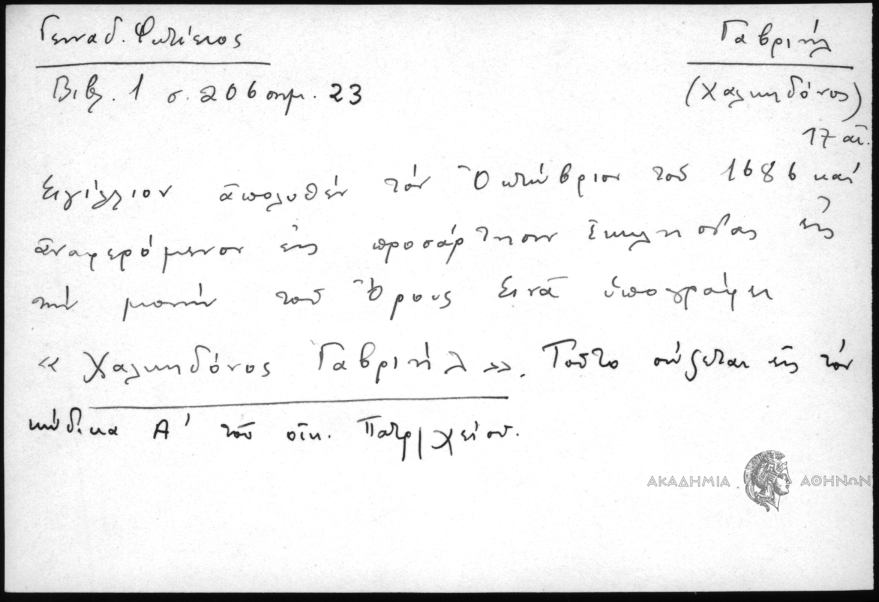 Γενναδ. Φωτίειος
Βιβλ. 1 σ. 206 σημ. 23
Γαβριήλ
(Χαλκηδόνος)
17 αἰ.
Σιγίλλιον ἀπολυθέν τόν Ὀκτώβριον τοῦ 1686 καί
ἀναφερόμενον εἰς προσάρτησιν Ἐκκλησίας εἰς
τήν μονήν τοῦ Ὄρους Σινᾶ ὑπογράφει
« Χαλκηδόνος Γαβριήλ ». Τοῦτο σώζεται εἰς τόν
κώδικα Α' τοῦ οἰκ. Πατρ/χείου.
ΑΚΑΔΗΜΙΑ ΑΘΗΝΩΝ